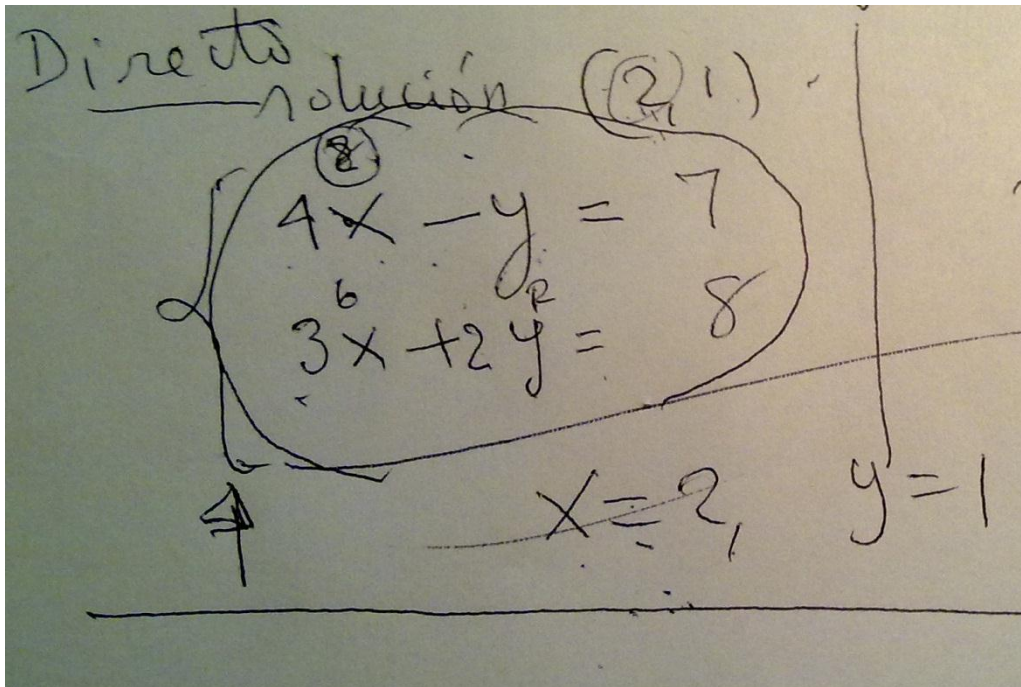 Directo
solución (2, 1)
8
4x - y = 7
6 2
3x + 2y = 8
x = 2, y = 1